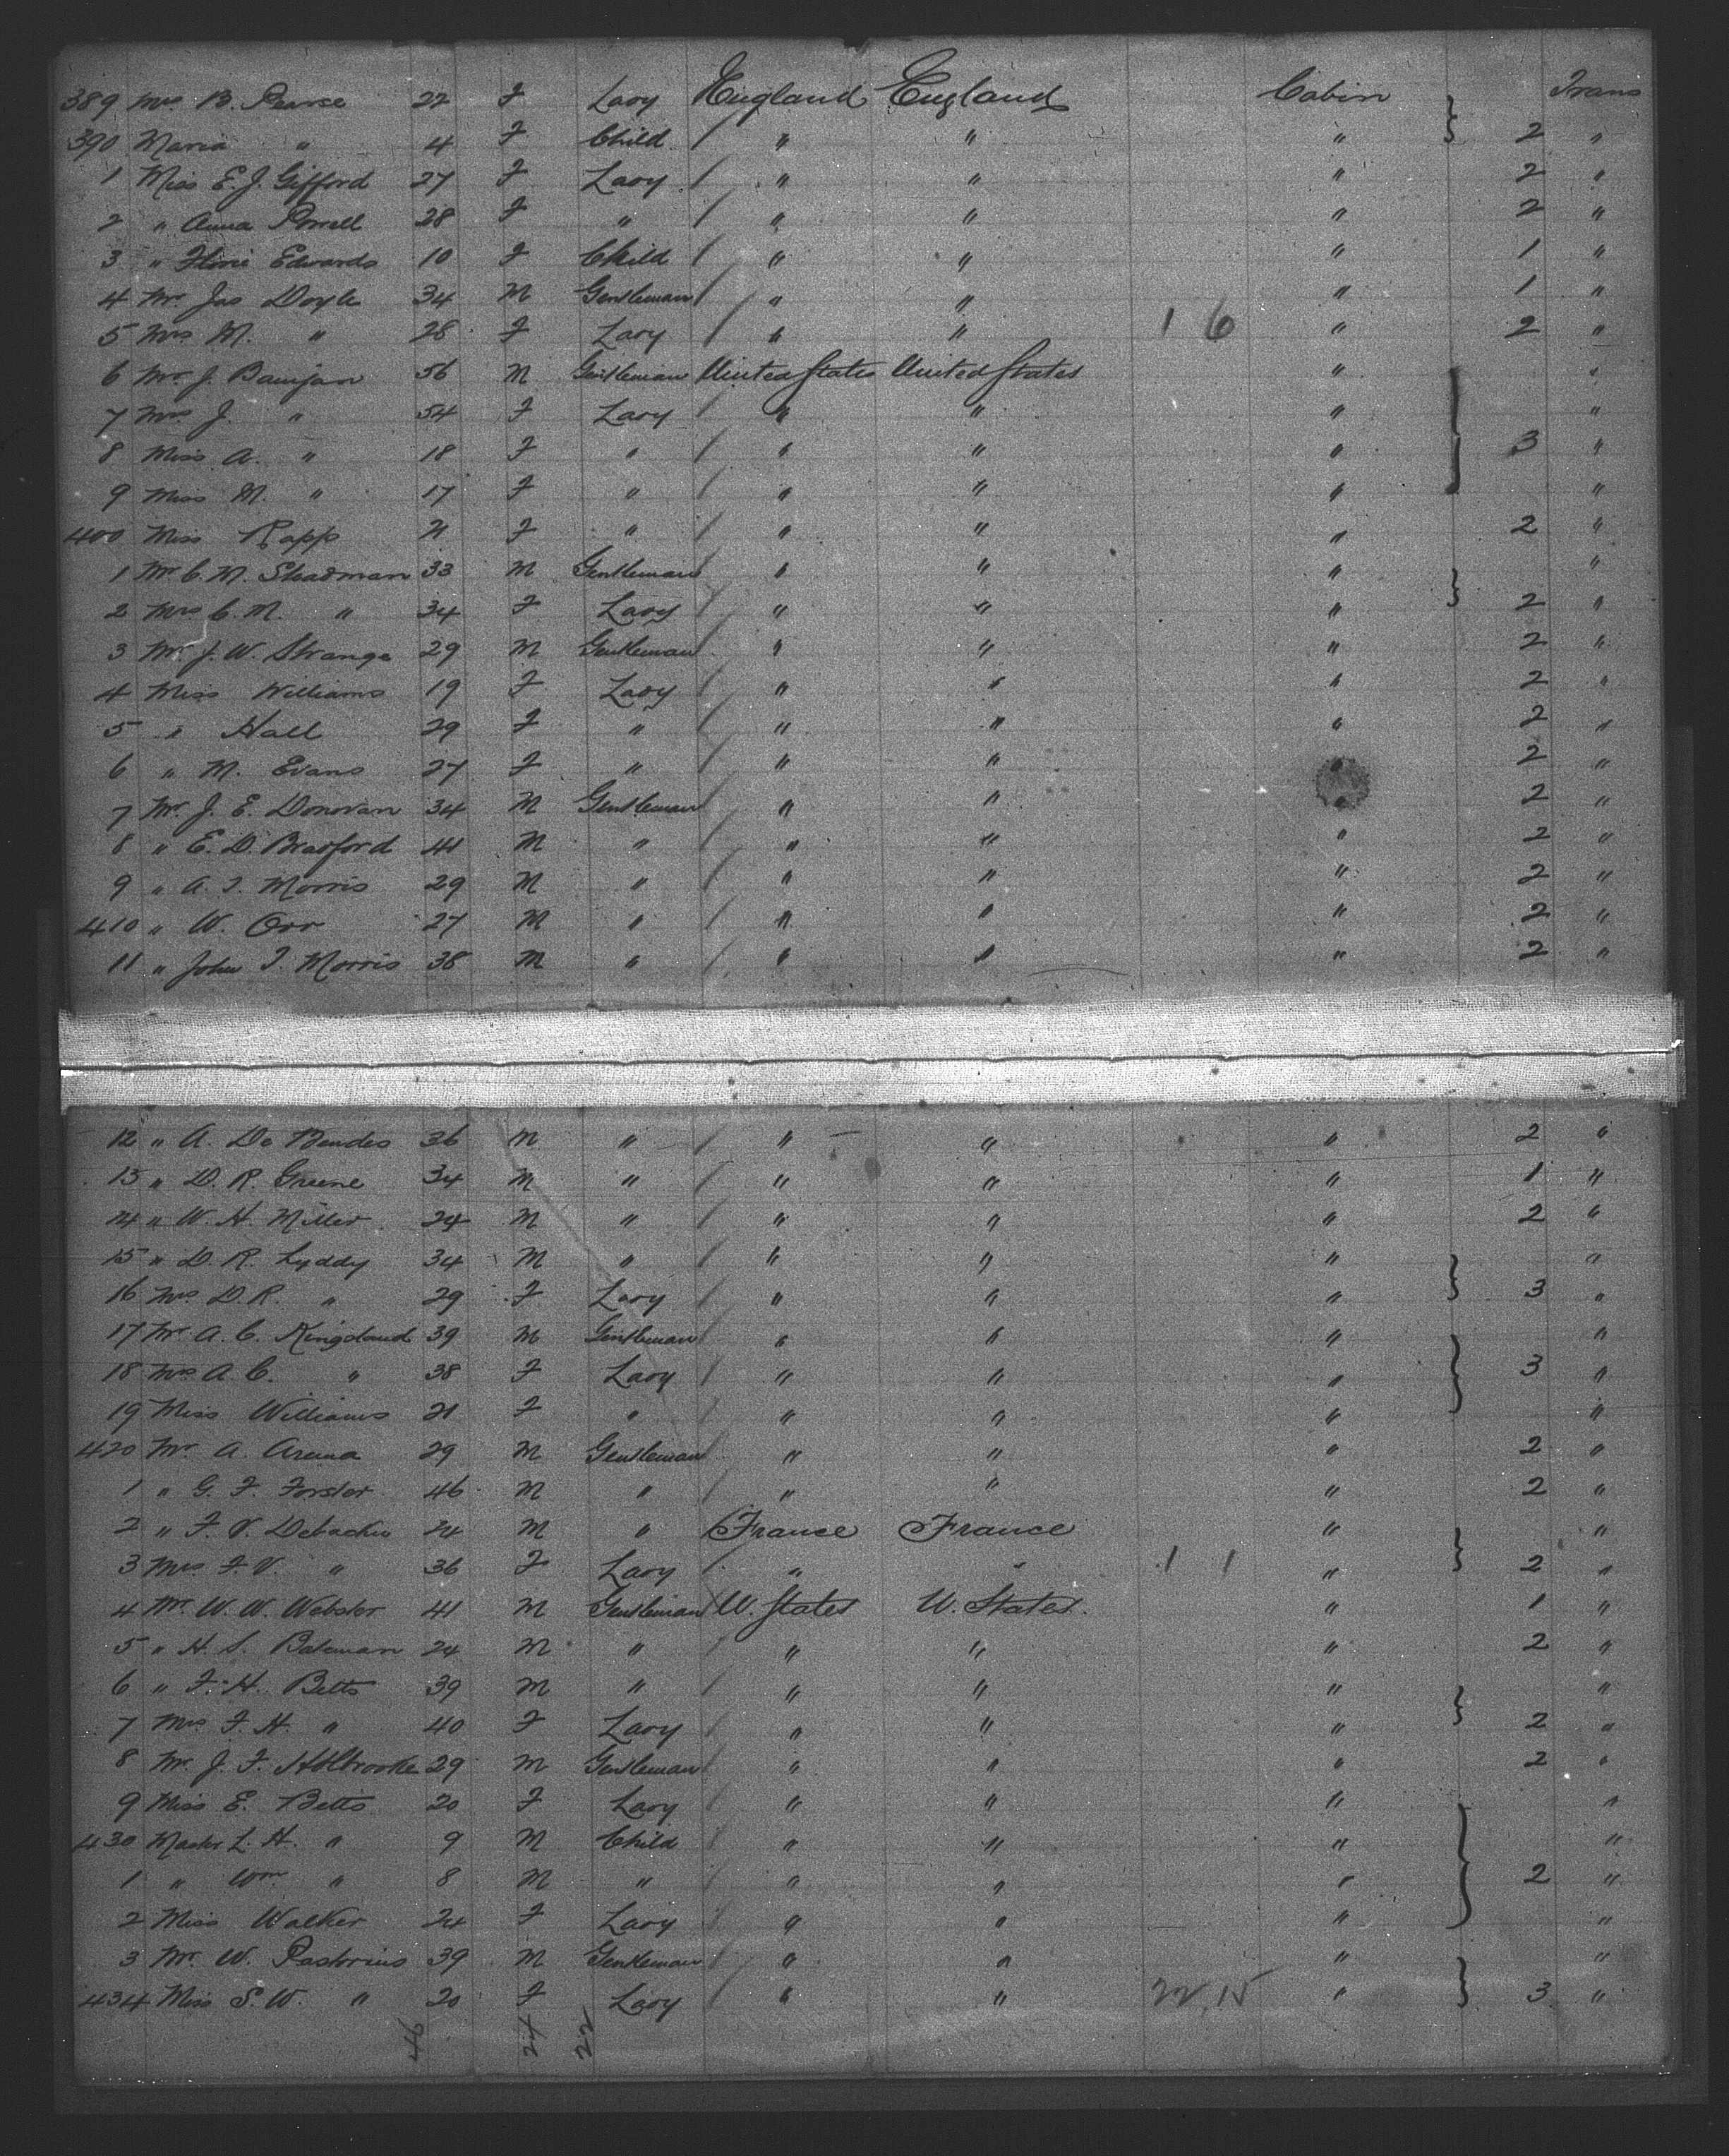 389 Mrs B. Pearse 22 F Lady England England Cabin Trans
390 Maria " 4 F Child " " " 2 "
1 Miss E. J. Gifford 27 F Lady " " " 2 "
2 " Anna Powell 28 F " " " " 2 "
3 " Edwards 10 F Child " " " 1 "
4 Mr Jas Doyle 34 M Gentleman " " " 1 "
5 Mrs M. " 28 F Lady " " 1 6 " 2 "
6 Mr J. 56 M Gentleman United States United States " "
7 Mrs J. " 54 F Lady " " " "
8 Miss A. " 18 F " " " " 3 "
9 Miss M. " 17 F " " " " "
400 Miss Rapp 21 F " " " " 2 "
1 Mr C. M. Steadman 33 M Gentleman " " " "
2 Mrs C. M. " 34 F Lady " " " 2 "
3 Mr J. W. Strange 29 M Gentleman " " " 2 "
4 Miss Williams 19 F Lady " " " 2 "
5 " Hall 29 F " " " " 2 "
6 " M. Evans 27 F " " " " 2 "
7 Mr J. E. Donovan 34 M Gentleman " " " 2 "
8 " E. D. Bradford 41 M " " " " 2 "
9 " A. J. Morris 29 M " " " " 2 "
410 " W. Orr 27 M " " " " 2 "
11 " John J. Morris 38 M " " " " 2 "
12 " A. De 36 M " " " " 2 "
13 " D. R. Greene 34 M " " " " 1 "
14 " W. H. Miller 24 M " " " " 2 "
15 " D. R. Lyddy 34 M " " " " "
16 Mrs D. R. " 29 F Lady " " " 3 "
17 Mr A. C. Kingsland 39 M Gentleman " " " "
18 Mrs A. C. " 38 F Lady " " " 3 "
19 Miss Williams 21 F " " " " "
420 Mr A. 29 M Gentleman " " " 2 "
1 " G. F. Forster 46 M " " " " 2 "
2 " F. V. Debacker 24 M " France France " "
3 Mrs F. V. " 36 F Lady " " 1 1 " 2 "
4 Mr W. W. Webster 41 M Gentleman U. States U. States. " 1 "
5 " H. S. Bateman 24 M " " " " 2 "
6 " F. H. Betts 39 M " " " " "
7 Mrs F. H. " 40 F Lady " " " 2 "
8 Mr J. F. Holbrooke 29 M Gentleman " " " 2 "
9 Miss E. Betts 20 F Lady " " " "
430 Master L. H. " 9 M Child " " " "
1 " Wm " 8 M " " " " 2 "
2 Miss Walker 24 F Lady " " " "
3 Mr W. Pastorius 39 M Gentleman " " " "
434 Miss S. W. " 20 F Lady " " 22 15 " 3 "
46 24 22